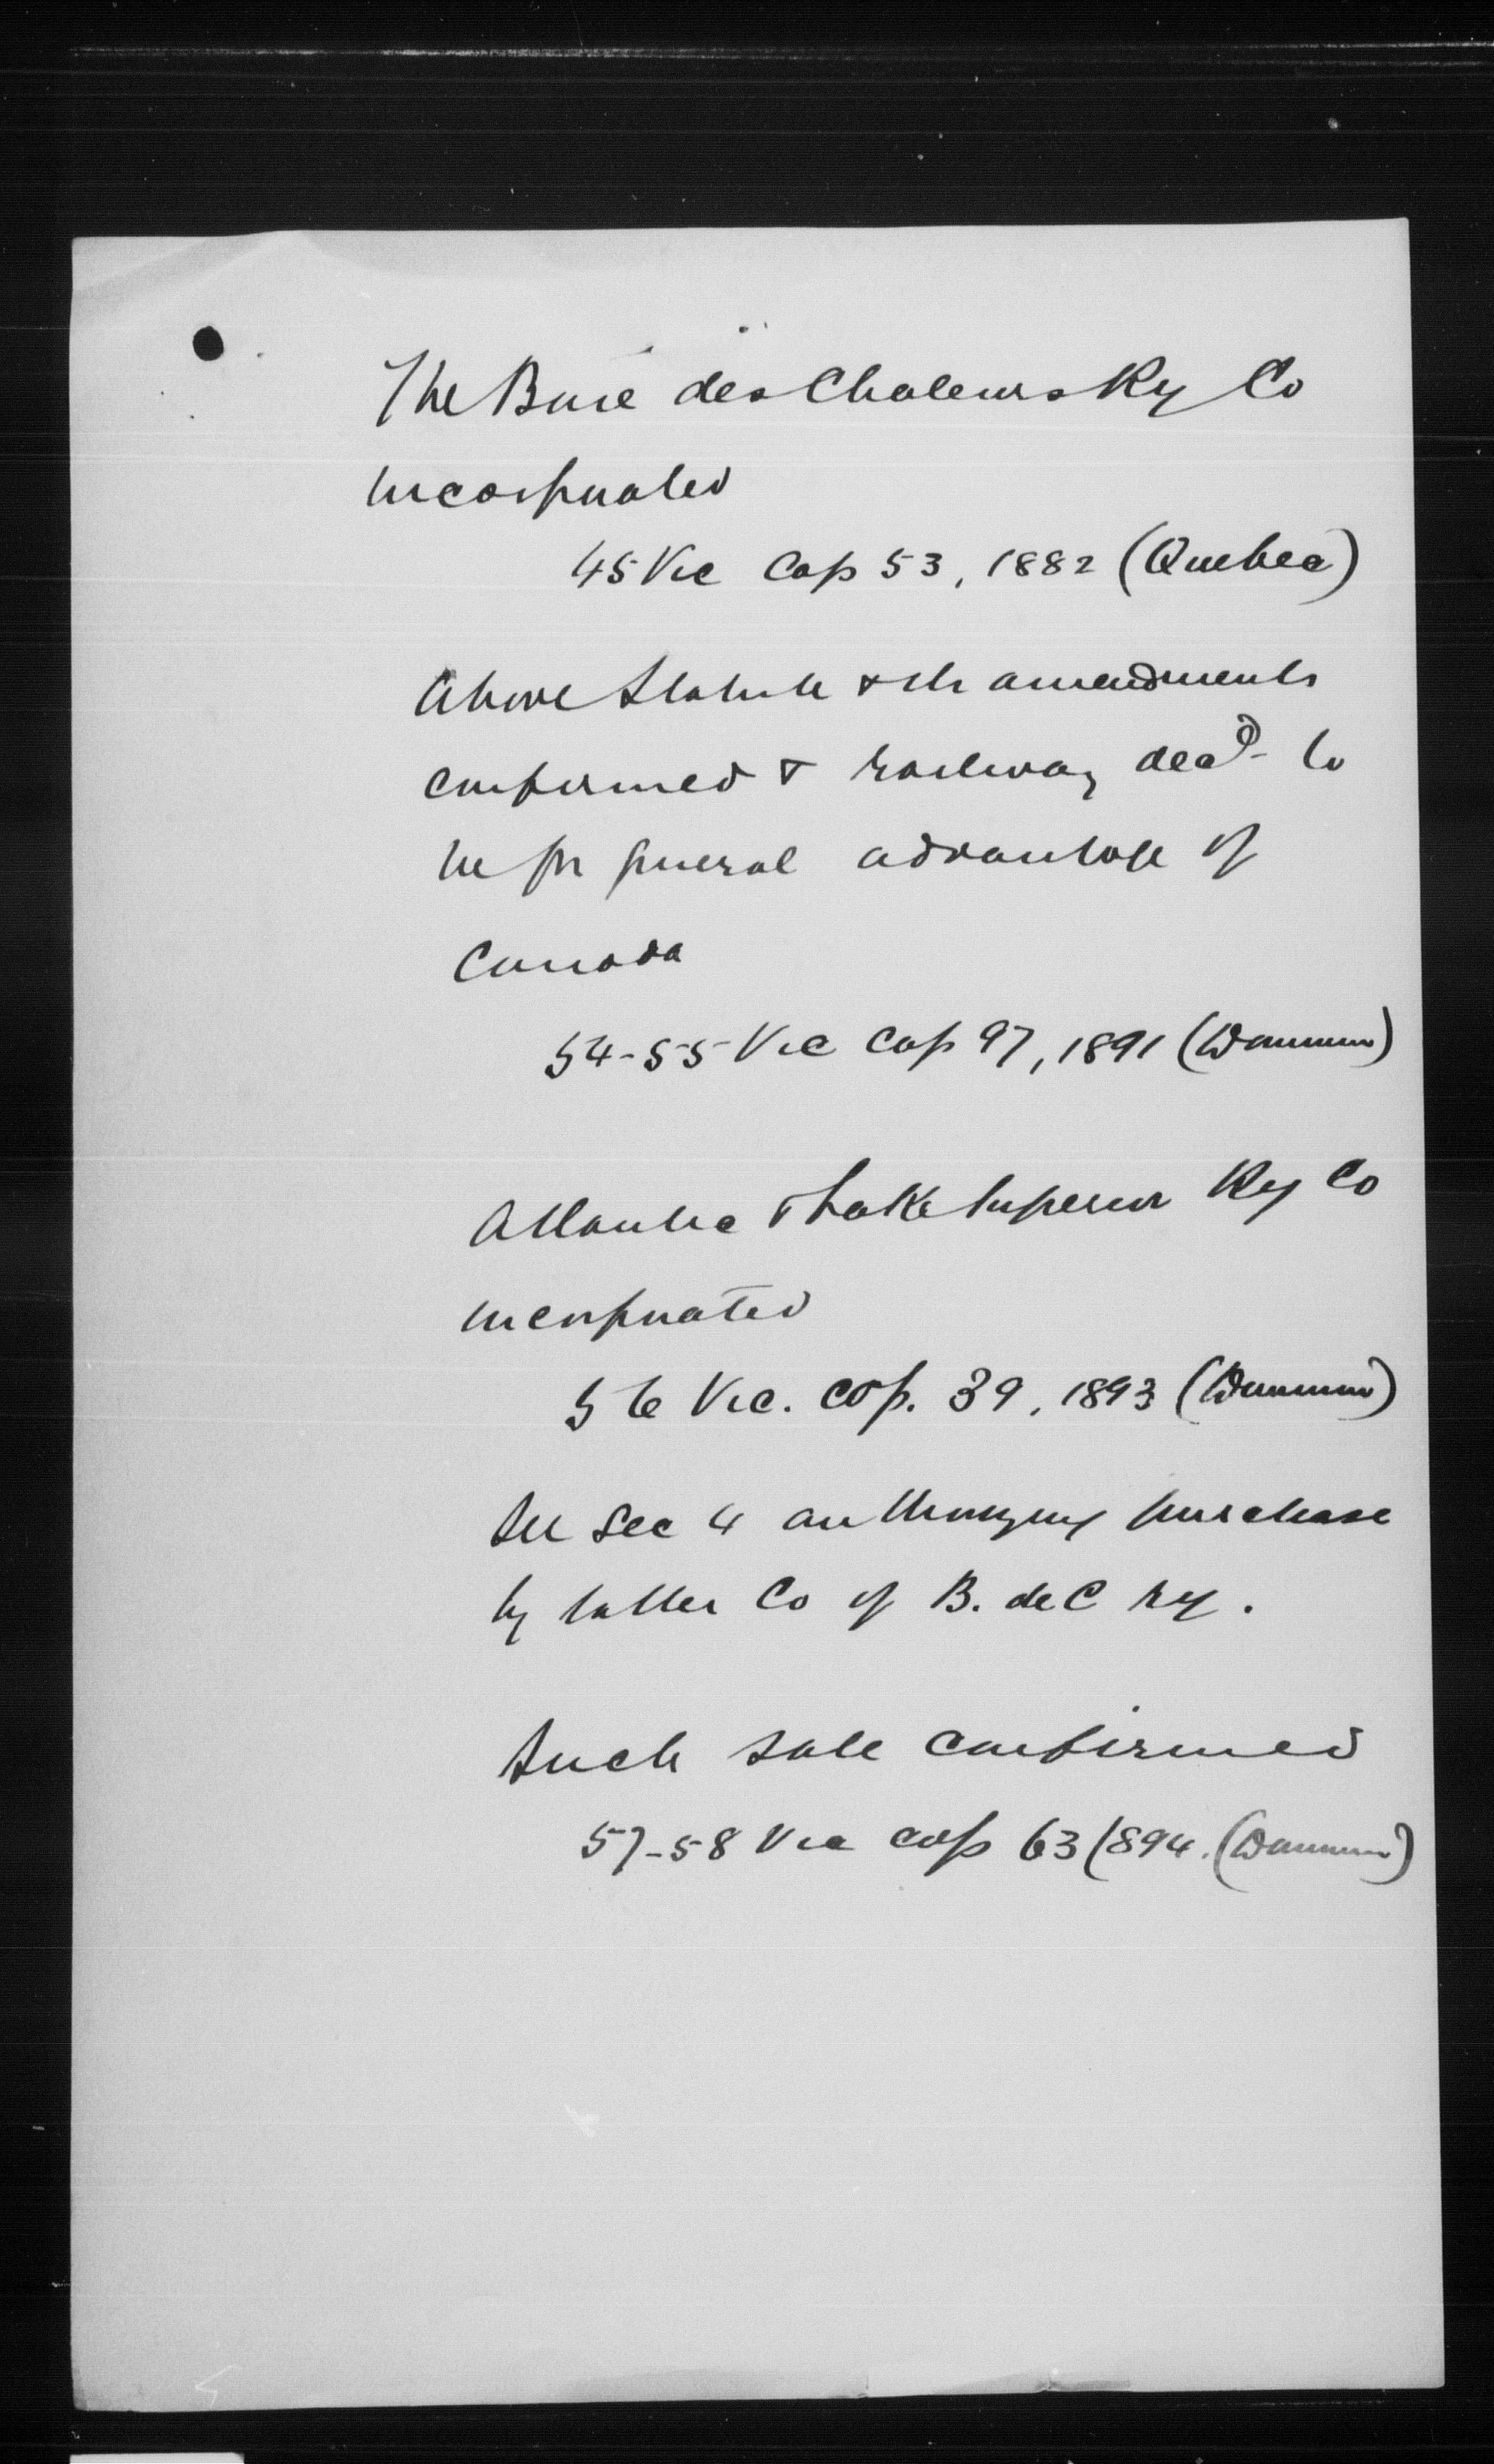 The Baie des Chaleurs Ry Co
incorporated
45 Vic Cap 53, 1882 (Quebec)
Above Statute & its amendments
confirmed & railway decd to
be for general advantage of
Canada
54-55 Vic Cap 97, 1891 (Dominion)
Atlantic & Lake Superior Ry Co
incorporated
56 Vic. cap. 39, 1893 (Dominion)
See Sec 4 authorizing purchase
by latter Co of B. de C Ry.
Such sale confirmed
57-58 Vic cap 63 1894. (Dominion)